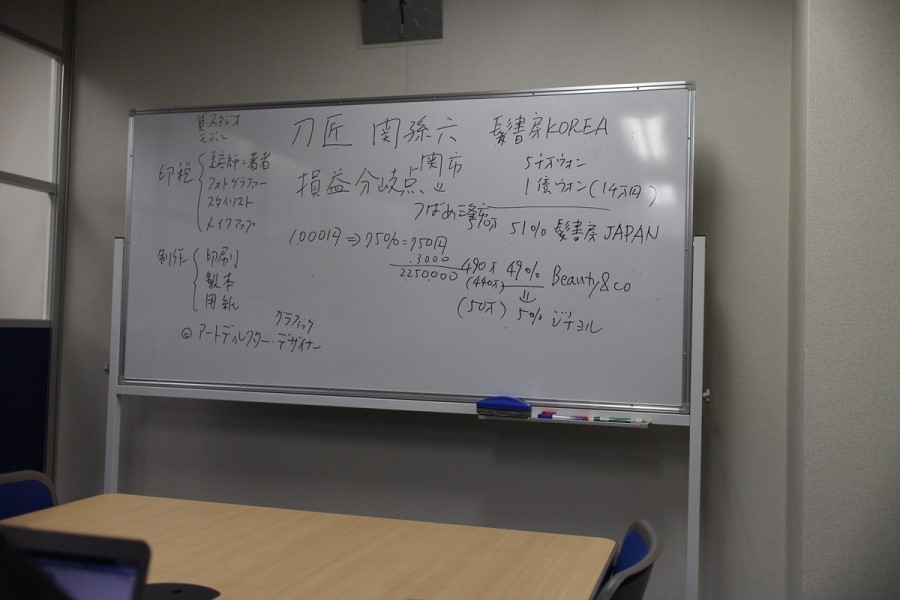 スタジオ
モデル
印税
美容師=著者
フォトグラファー
スタイリスト
メイクアップ
制作
印刷
製本
用紙
© アートディレクター・デザイナー
グラフィック
刀匠 関孫六
損益分岐点
関市
つばめ三条
1000円⇒75%=750円
3000
2250000
髪書房KOREA
5千万ウォン
1億ウォン(
570万 51% 髪書房 JAPAN
490万 49% Beauty&co
(440万)
(50万) 5%